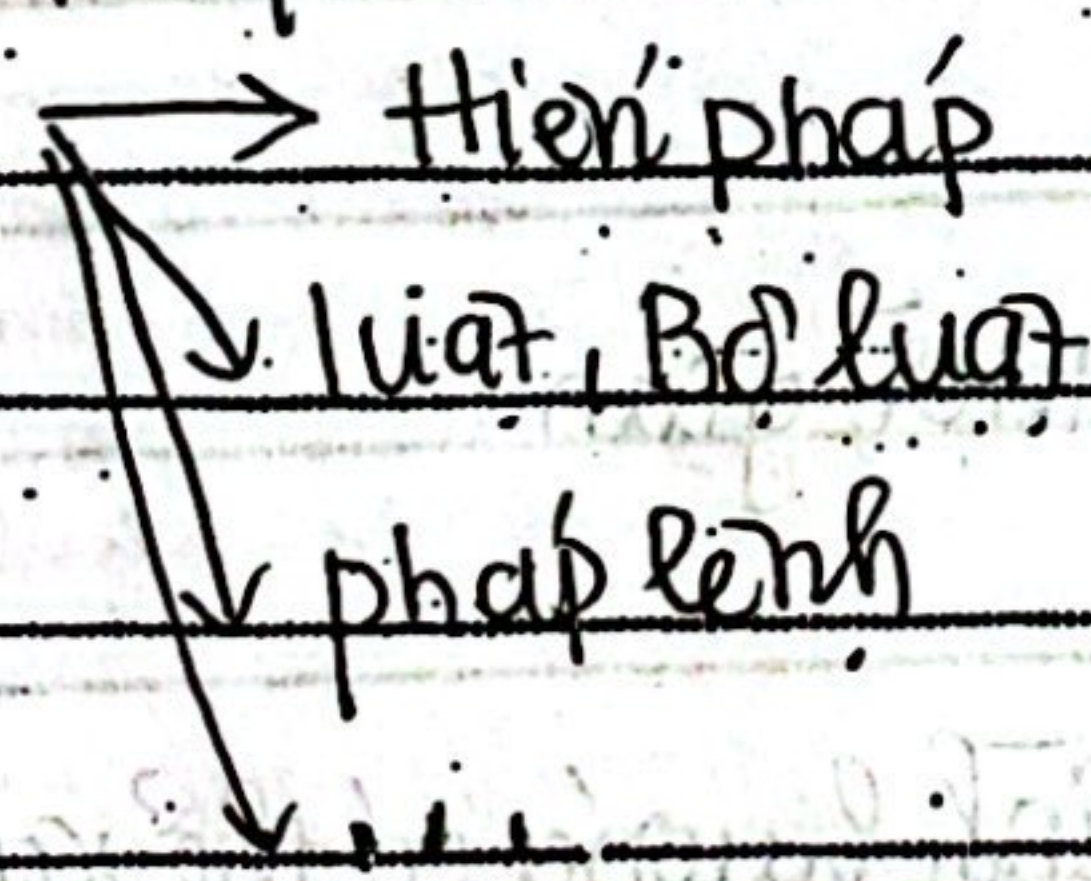 → Hiến pháp
→ luật, Bộ luật
→ pháp lệnh
→ ...